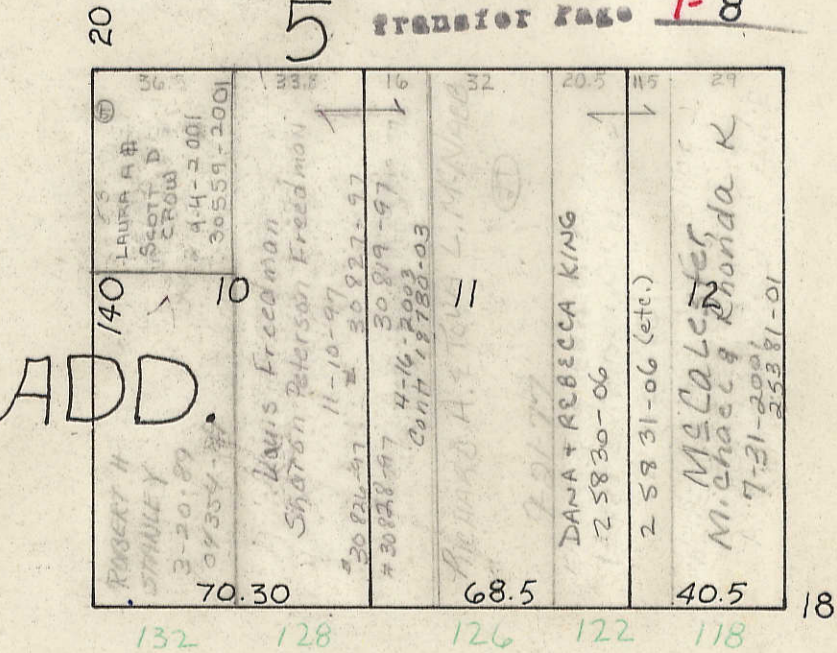 20
5
Transfer Page 1-8
36
33.8
16
32
20.5
11.5
29
LAURA A &
SCOTT D
CROW
9-4-2001
30559-2001
140
10
11
12
ADD.
ROBERT H
STANLEY
3-20-89
Sharon Peterson Freedman
11-10-97
# 30827-97
# 30826-97
30819-97
# 30828-97
4-16-2003
Cont# 18780-03
DANA & REBECCA KING
25830-06
25831-06 (etc.)
Michael & Rhonda K
7-31-2001
25381-01
70.30
68.5
40.5
18
132
128
126
122
118